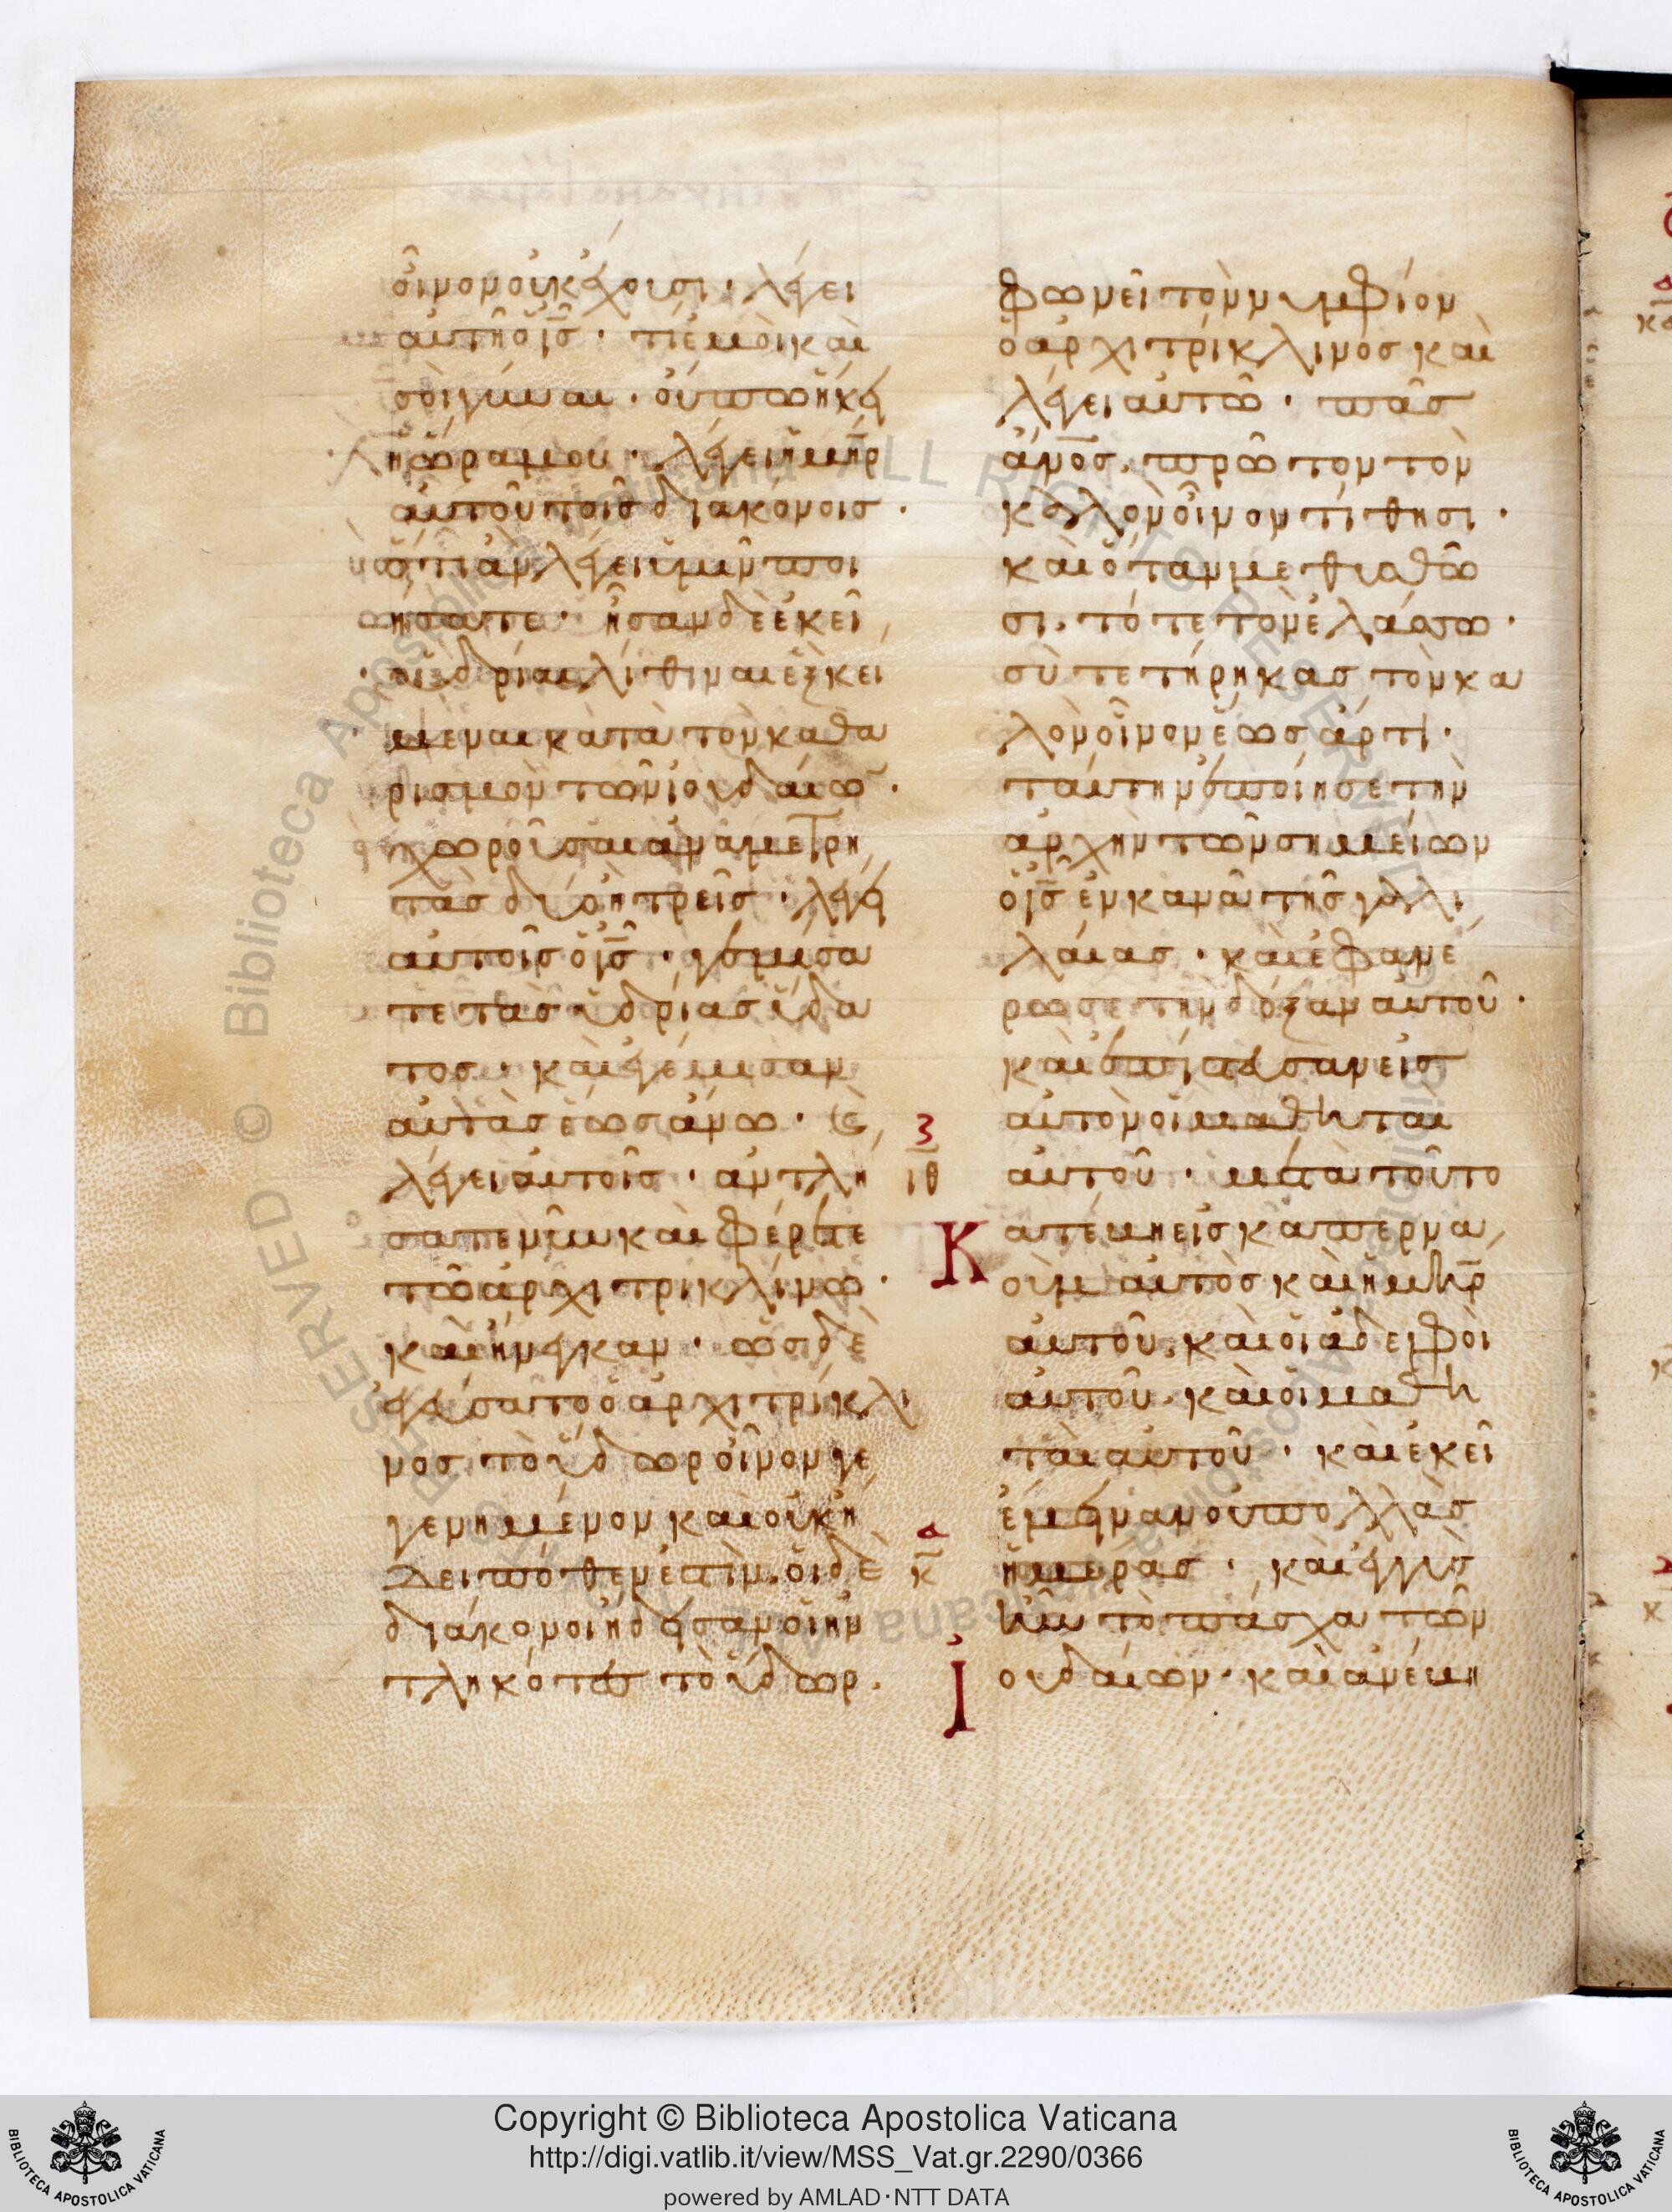 οἶνον οὐκ ἔχουσι · λέγει
αὐτῆ ὁ ι̅ς̅ · τί ἐμοὶ καὶ
σοὶ γύναι · οὔπω ἥκει
ἡ ὥρα μου · λέγει ἡ μη̅ρ̅
αὐτοῦ τοῖς διακόνοις ·
ὅτι ἂν λέγει ὑμῖν ποι
ήσατε · ἦσαν δὲ ἐκεῖ
ὑδρίαι λίθιναι ἓξ κεί
μεναι κατὰ τὸν καθα
ρισμὸν τῶν ἰουδαίω̅ ·
χωροῦσαι ἀνὰ μετρη
τὰς δύο ἢ τρεῖς · λέγει
αὐτοῖς ὁ ι̅ς̅ · γεμίσα
τε τὰς ὑδρίας ὕδα
τος · καὶ ἐγέμισαν
αὐτὰς ἕως ἄνω · καὶ
λέγει αὐτοῖς · ἀντλή
σατε νῦν καὶ φέρετε
τῶ ἀρχιτρικλίνω ·
καὶ ἤνεγκαν · ὡς δὲ
ἐγεύσατο ὁ ἀρχιτρίκλι
νος τὸ ὕδωρ οἶνον γε
γενημένον καὶ οὐκ ἤ
δει πόθεν ἐστίν, οἱ δὲ
διάκονοι ἤδεσαν οἱ ἠν
τληκότες τὸ ὕδωρ ·
φωνεῖ τὸν νυμφίον
ὁ ἀρχιτρίκλινος καὶ
λέγει αὐτῶ · πᾶς
ἄ̅ν̅ο̅ς̅, πρῶτον τὸν
καλὸν οἶνον τίθησι ·
καὶ ὅταν μεθυσθῶ
σι, τότε τὸν ἐλάσσω ·
σὺ τετήρηκας τὸν κα
λὸν οἶνον ἕως ἄρτι ·
ταύτην ἐποίησε τὴν
ἀρχὴν τῶν σημείων
ὁ ι̅ς̅ ἐν κανᾶ τῆς γαλι
λαίας · καὶ ἐφανέ
ρωσε τὴν δόξαν αὐτοῦ ·
καὶ ἐπίστευσαν εἰς
αὐτὸν οἱ μαθηταὶ
ζ
ιθ
αὐτοῦ · μετὰ τοῦτο
Κ ατέβη εἰς καπερνα
οὺμ αὐτὸς καὶ ἡ μη̅ρ̅
αὐτοῦ, καὶ οἱ ἀδελφοὶ
αὐτοῦ, καὶ οἱ μαθη
ταὶ αὐτοῦ · καὶ ἐκεῖ
ἔμειναν οὐ πολλὰς
α
κ
ἡμέρας · καὶ ἐγγὺς
ἦν τὸ πάσχα τῶν
Ἰ ουδαίων · καὶ ἀνέβη
Copyright © Biblioteca Apostolica Vaticana
http://digi.vatlib.it/view/MSS_Vat.gr.2290/0366
powered by AMLAD·NTT DATA
BIBLIOTECA APOSTOLICA VATICANA
BIBLIOTECA APOSTOLICA VATICANA